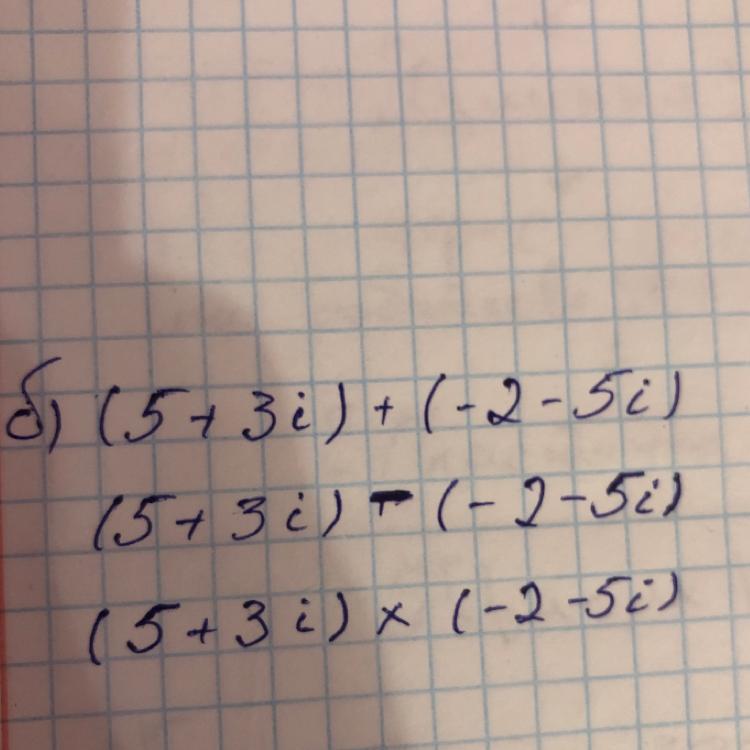 б) (5 + 3i) + (-2 - 5i)
(5 + 3i) - (-2 - 5i)
(5 + 3i) × (-2 - 5i)